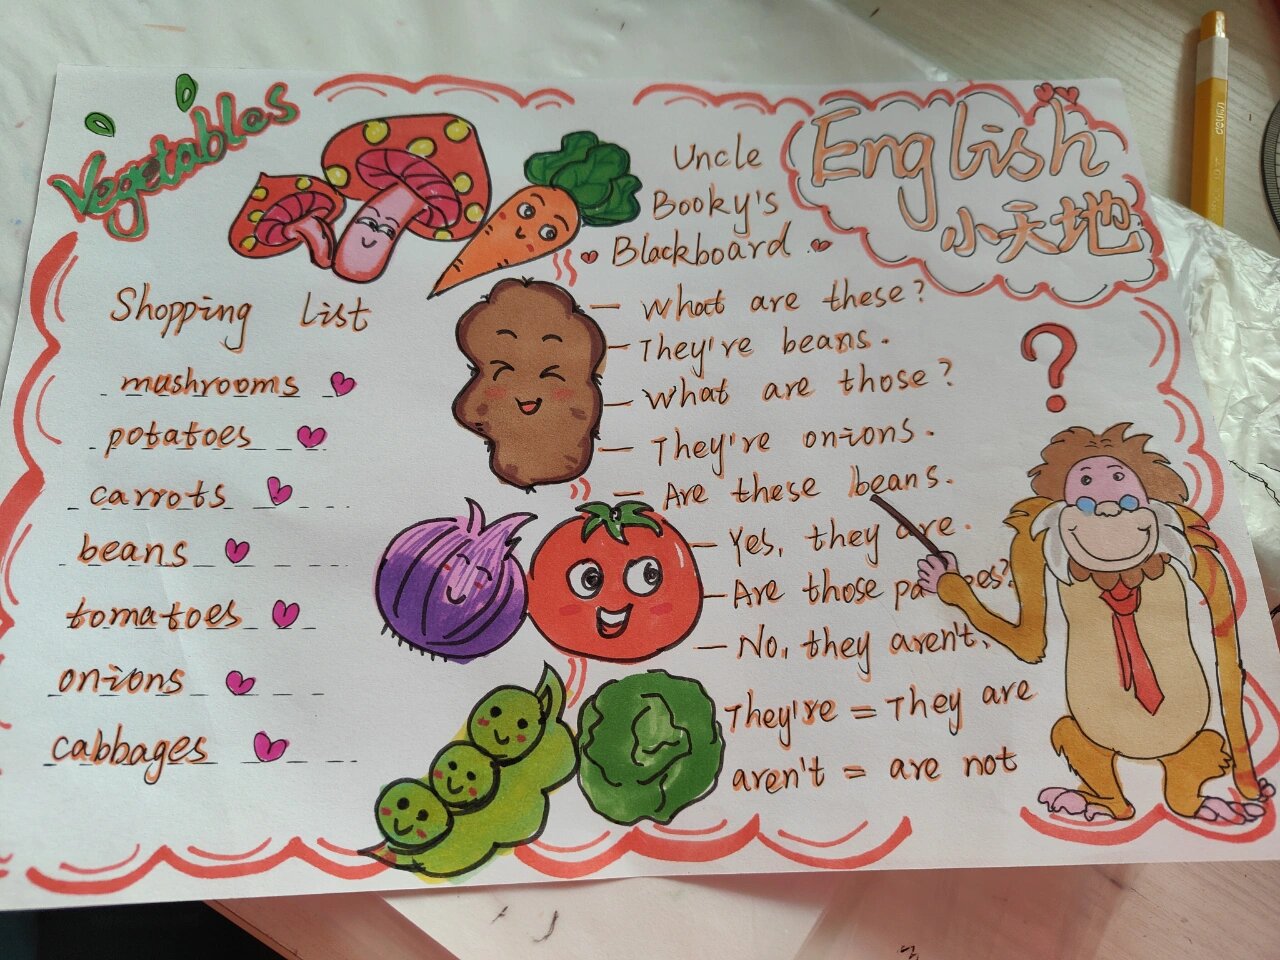 Vegetables
Shopping list
mushrooms
potatoes
carrots
beans
tomatoes
onions
cabbages
Uncle
Booky's
Blackboard
English
小天地
— What are these?
— They're beans.
— What are those?
— They're onions.
— Are these beans.
— Yes, they are.
— Are those pa oes?
— No, they aren't.
They're = They are
aren't = are not
deli